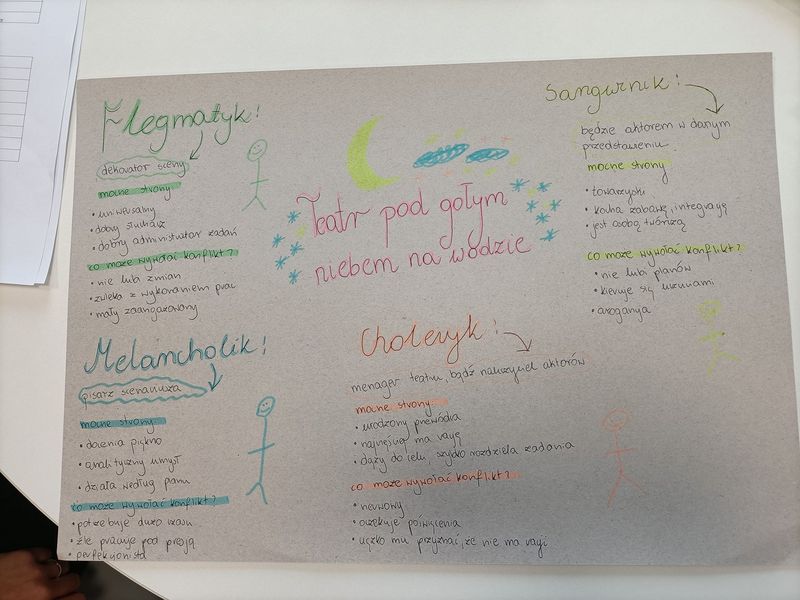 Flegmatyk!
dekorator sceny
mocne strony
• uniwersalny
• dobry słuchacz
• dobry administrator zadań
co może wywołać konflikt?
• nie lubi zmian
• zwleka z wykonaniem prac
• mały zaangażowany
Teatr pod gołym
niebem na wodzie
Sangwinik!
będzie aktorem w danym
przedstawieniu.
mocne strony
• towarzyski
• kocha zabawę, integrację
• jest osobą twórczą
co może wywołać konflikt?
• nie lubi planów
• kieruje się uczuciami
• arogancja
Melancholik!
pisarz scenariusza
mocne strony
• docenia piękno
• analityczny umysł
• działa według planu
co może wywołać konflikt?
• potrzebuje dużo czasu
• źle pracuje pod presją
• perfekcjonista
Choleryk!
menager teatru, bądź nauczyciel aktorów
mocne strony
• urodzony przywódca
• najczęściej ma rację
• dąży do celu, szybko rozdziela zadania
co może wywołać konflikt?
• nerwowy
• oczekuje poświęcenia
• ciężko mu przyznać, że nie ma racji